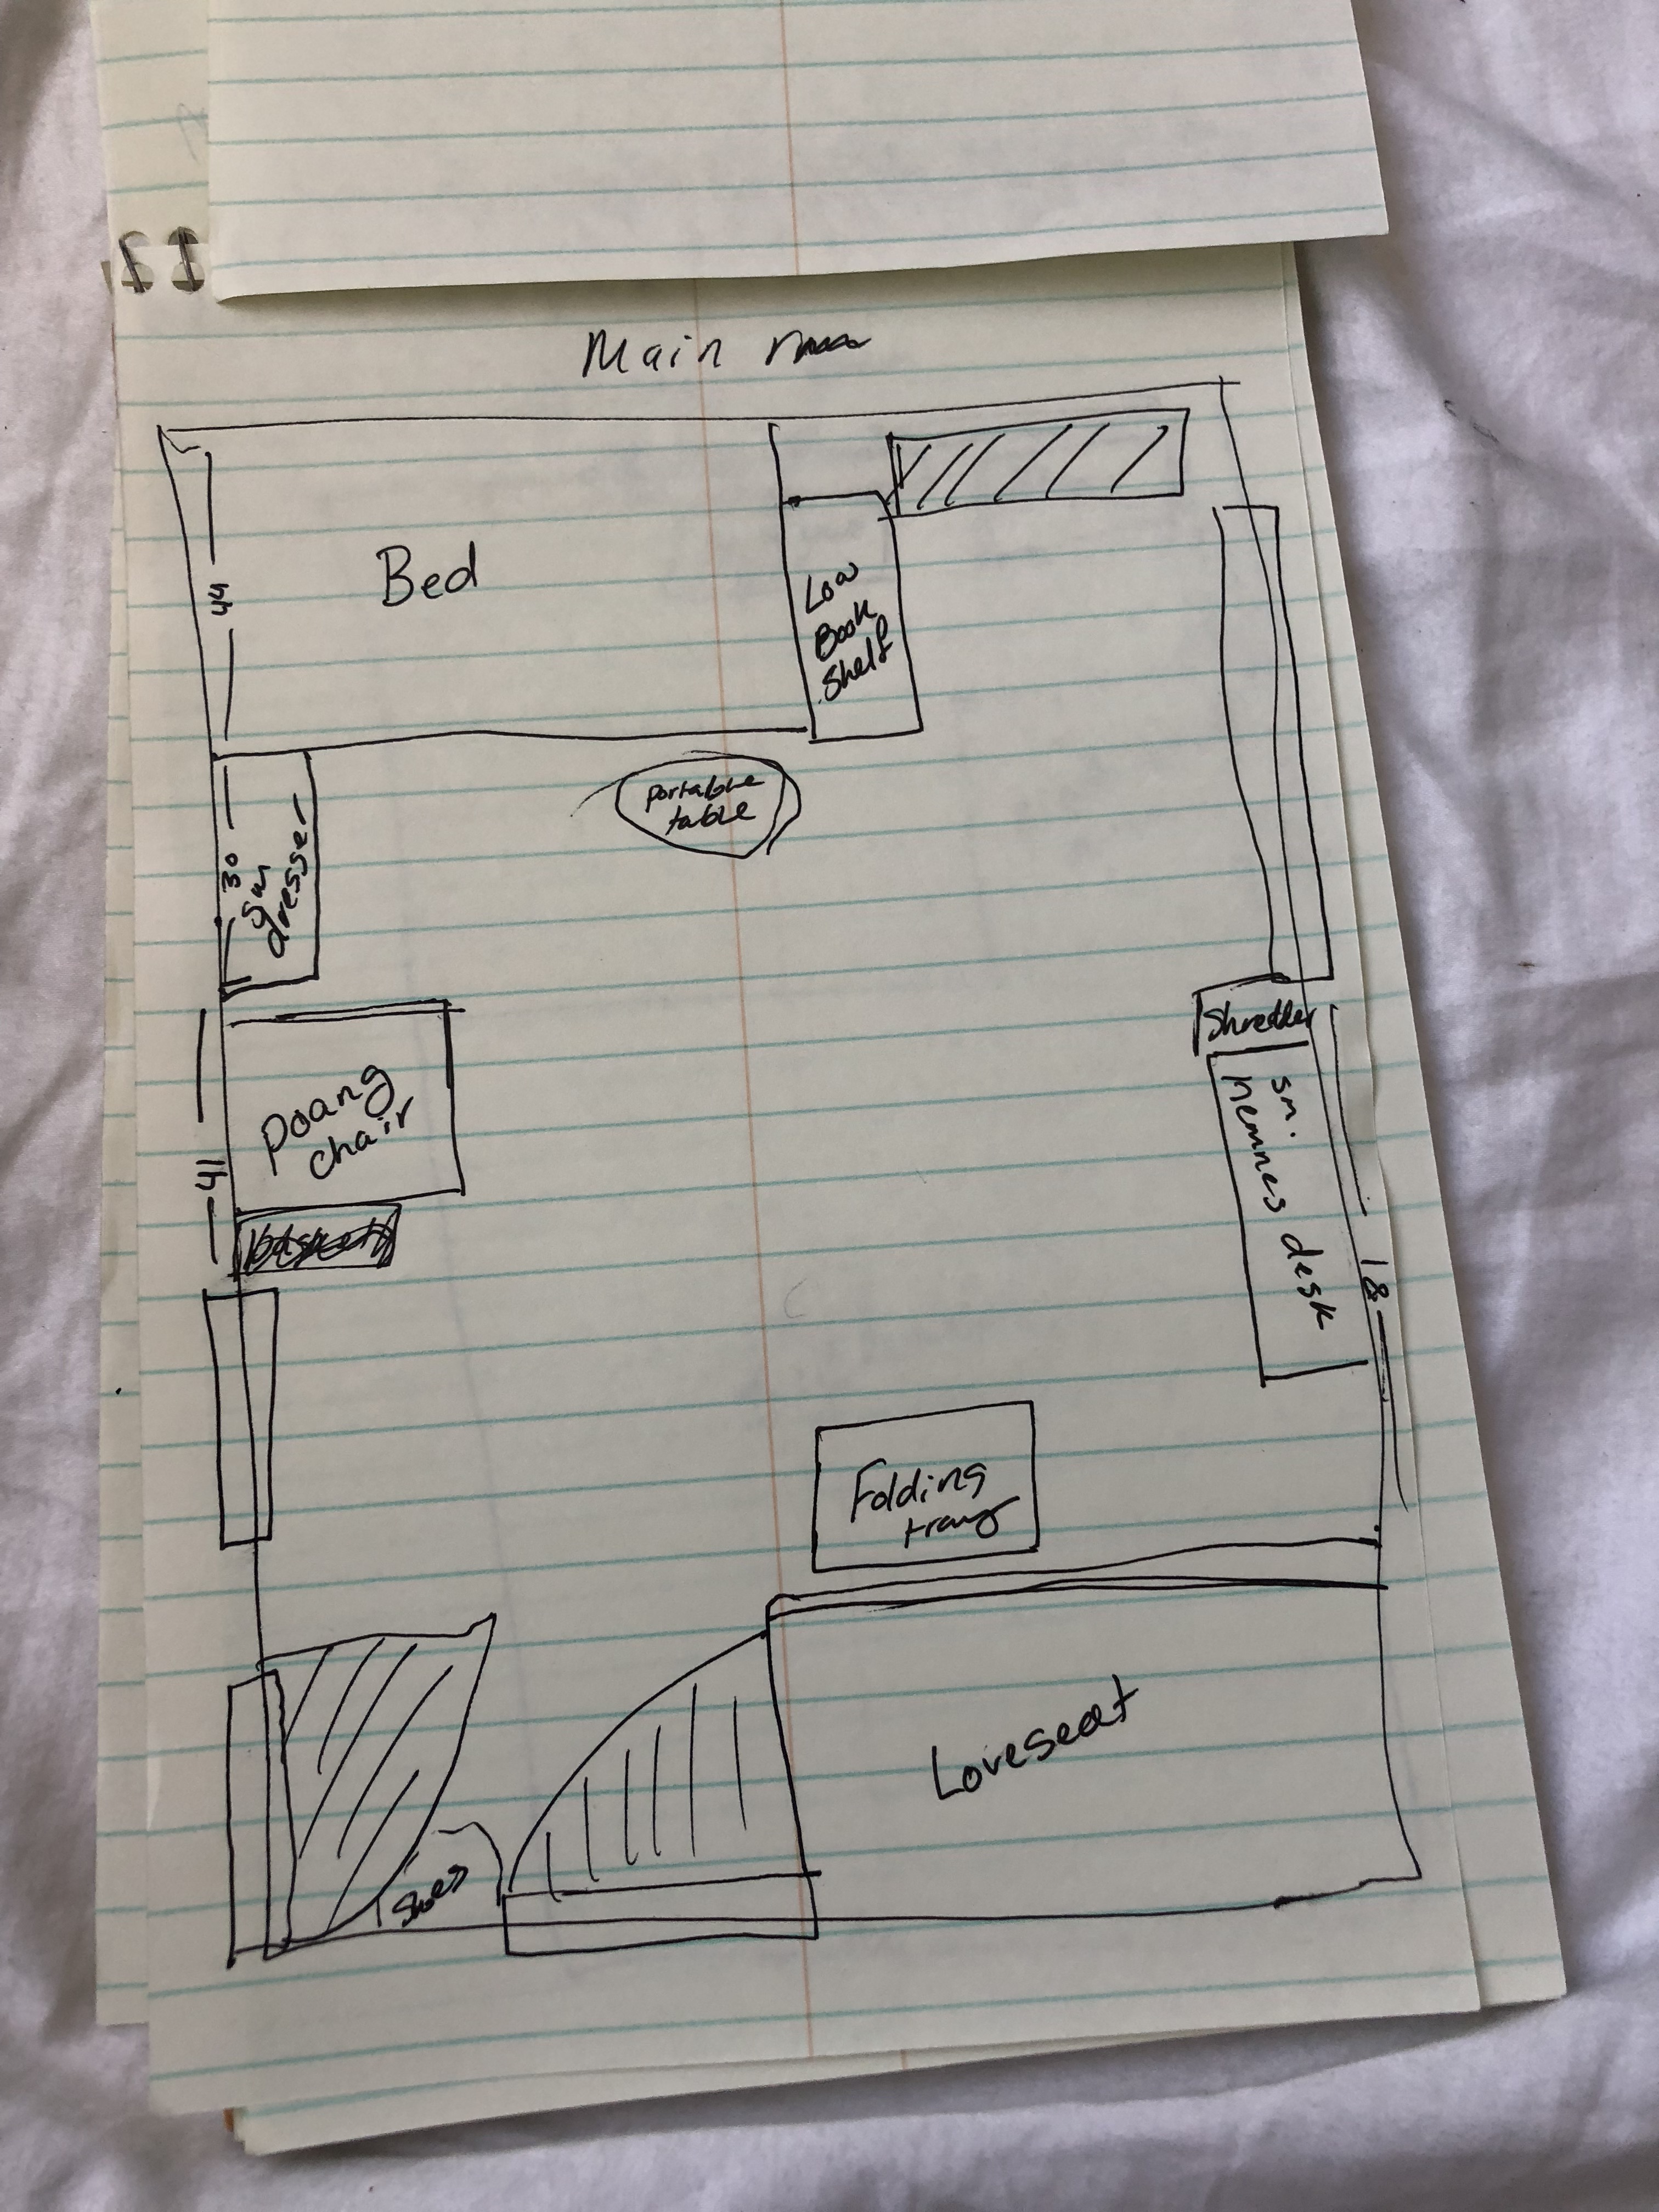 Main room
44
Bed
Low
Book
Shelf
portable
table
30
sm
dresser
Shredder
Poang
chair
41
sm.
hemnes desk
18
Folding
tray
Loveseat
Shoes